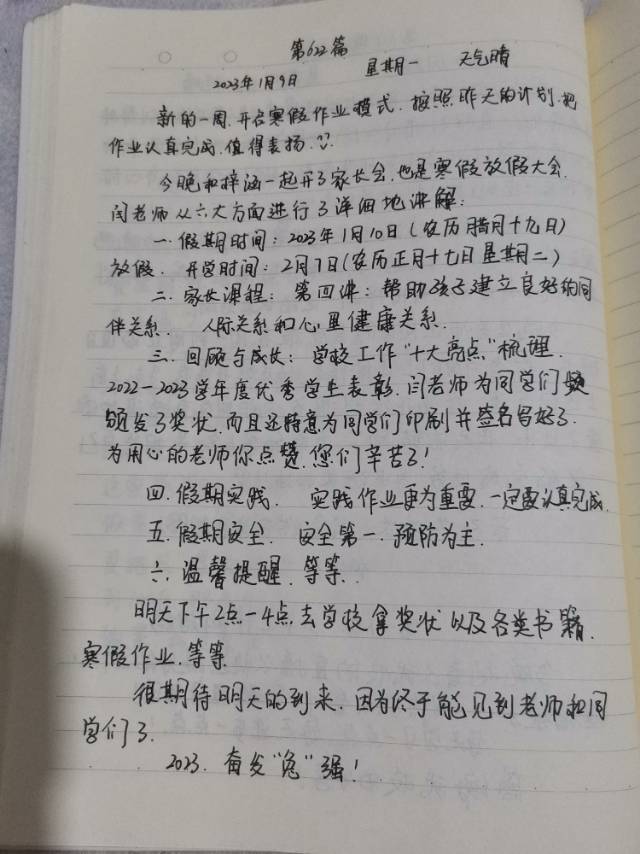 第622篇
2023年1月9日 星期一 天气晴
新的一周,开启寒假作业模式.按照昨天的计划,把
作业认真完成,值得表扬.
今晚和梓涵一起开了家长会,也是寒假放假大会.
闫老师从六大方面进行了详细地讲解:
一.假期时间:2023年1月10日(农历腊月十九日)
放假. 开学时间:2月7日(农历正月十七日星期二)
二.家长课程:第四讲:帮助孩子建立良好的同
伴关系. 人际关系和心里健康关系.
三.回顾与成长:学校工作“十大亮点”梳理.
2022-2023学年度优秀学生表彰.闫老师为同学们
颁发了奖状,而且还特意为同学们印刷并签名写好了.
为用心的老师你点赞,您们辛苦了!
四.假期实践. 实践作业更为重要.一定要认真完成.
五.假期安全. 安全第一.预防为主.
六.温馨提醒.等等.
明天下午2点-4点,去学校拿奖状以及各类书籍.
寒假作业.等等
很期待明天的到来,因为终于能见到老师和同
学们了.
2023.奋发“兔”强!